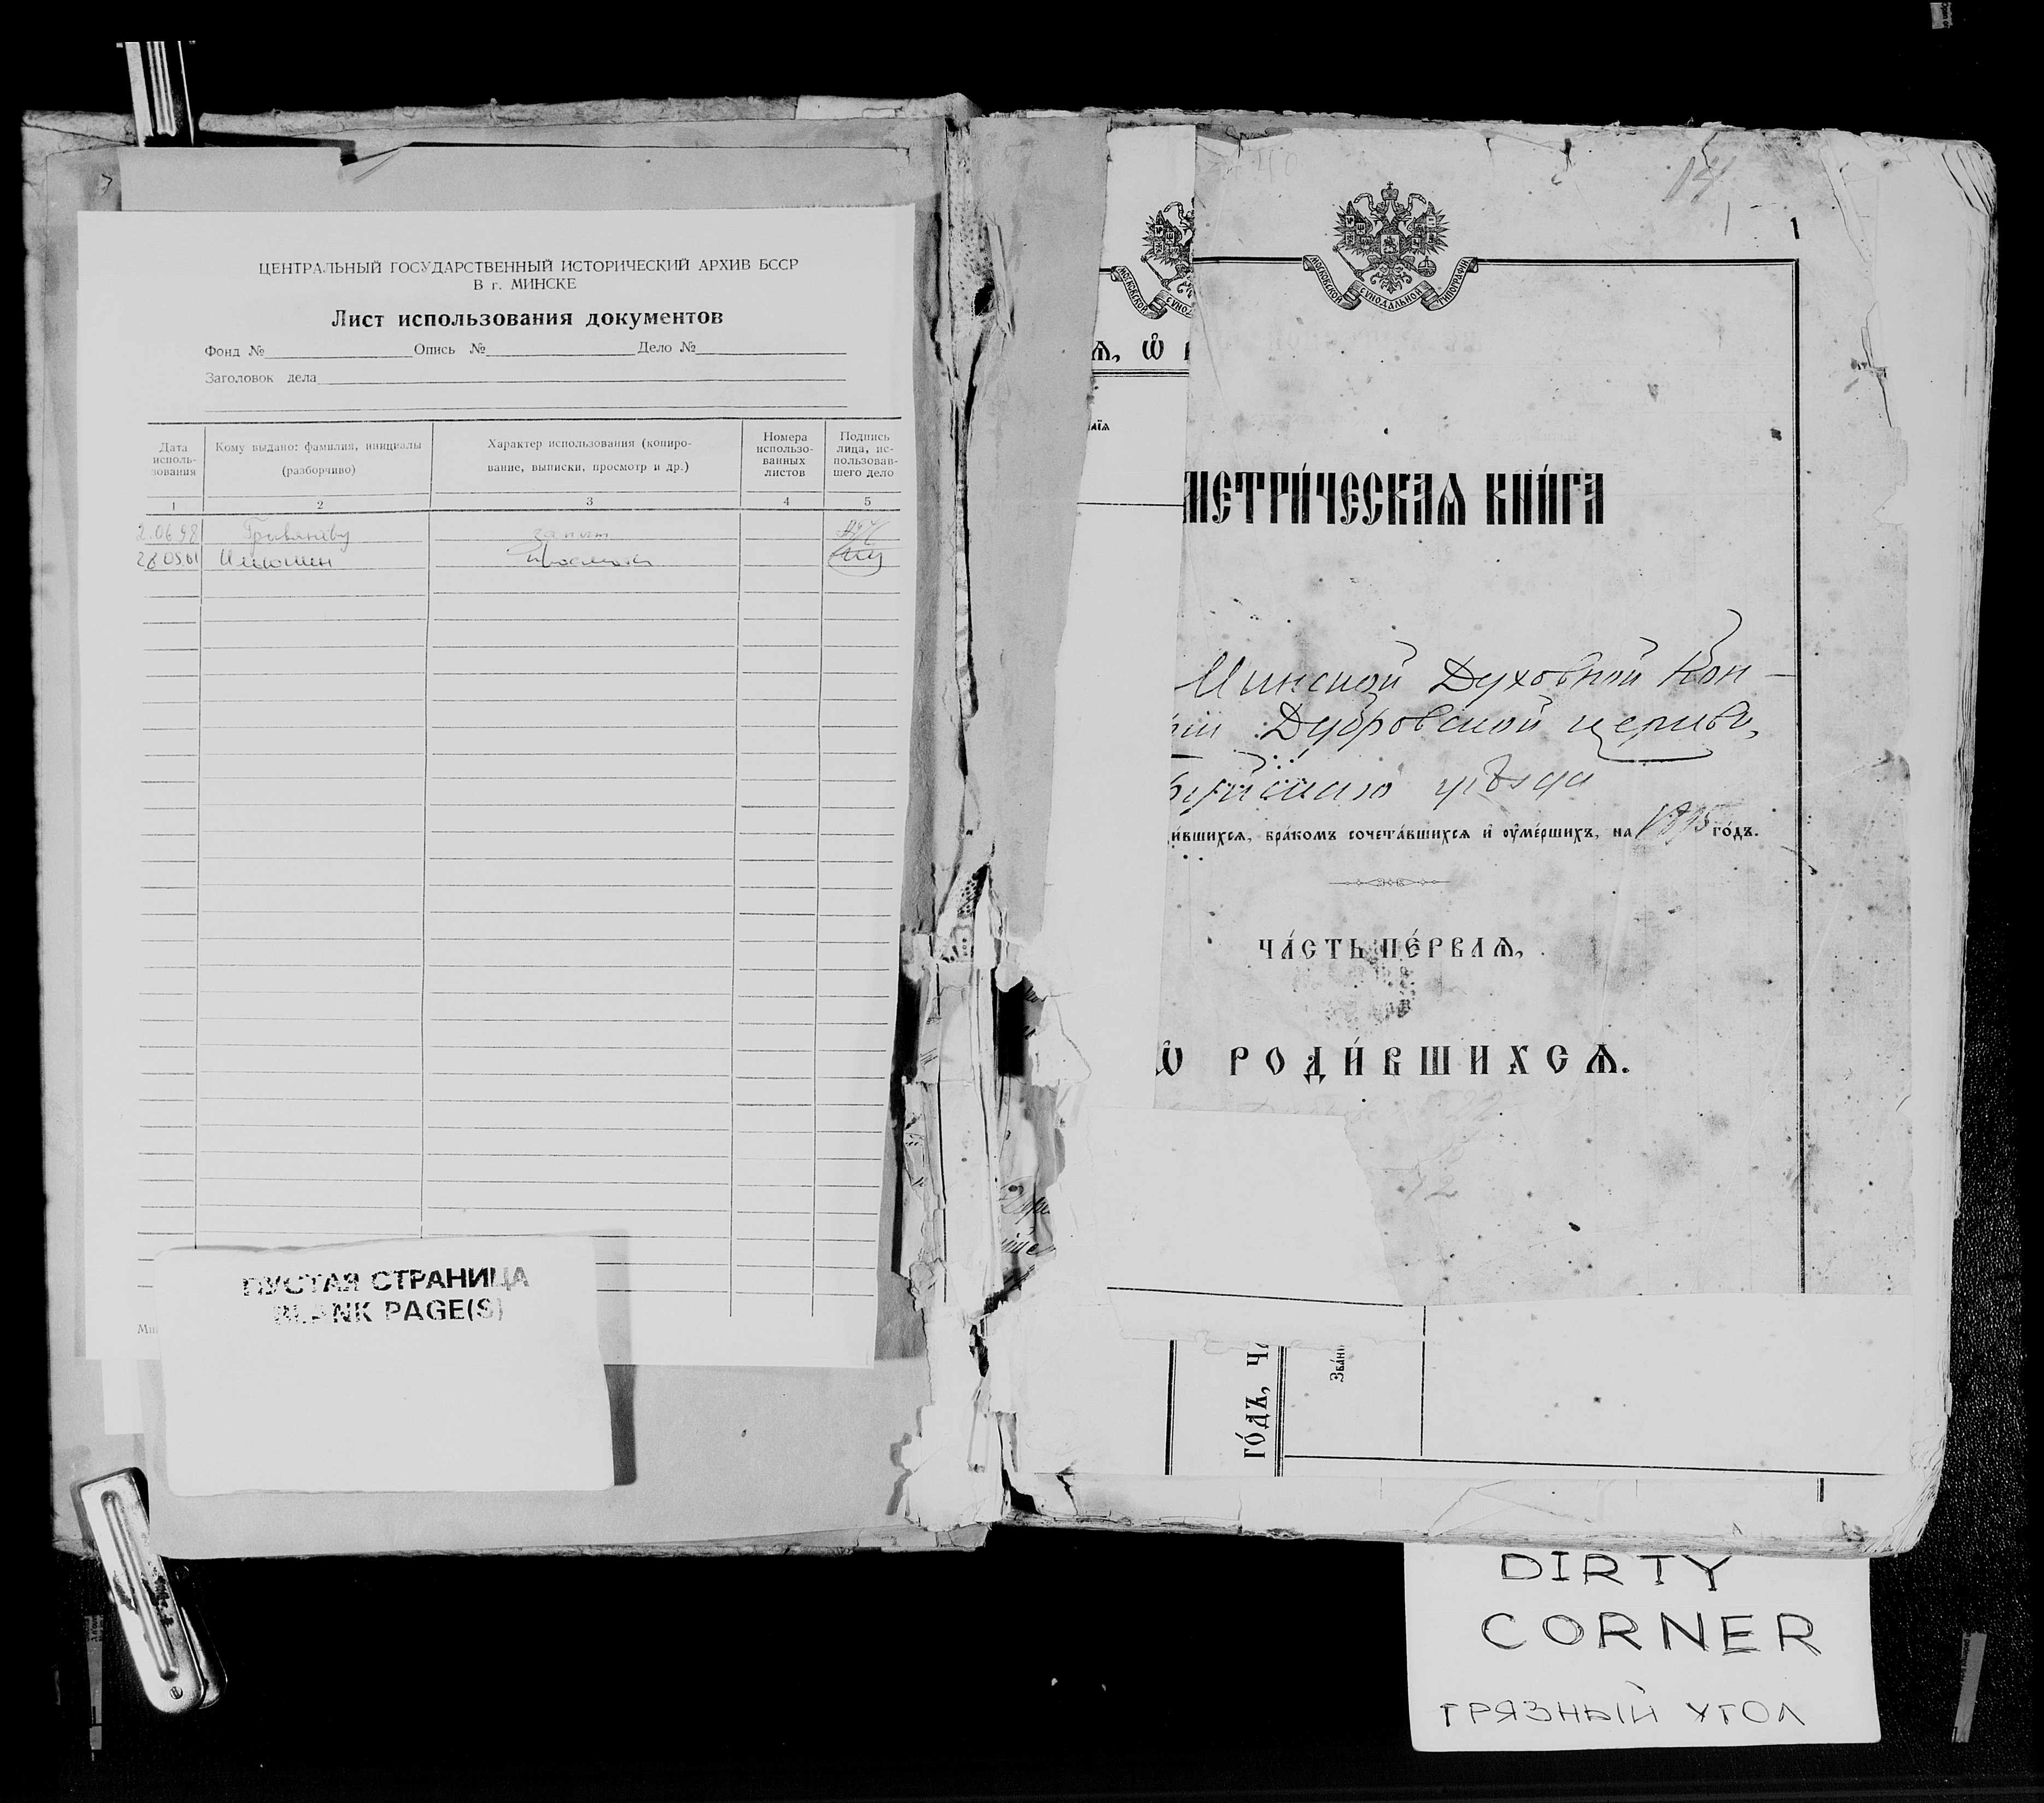 ЦЕНТРАЛЬНЫЙ ГОСУДАРСТВЕННЫЙ ИСТОРИЧЕСКИЙ АРХИВ БССР
В г. МИНСКЕ
Лист использования документов
Фонд № Опись № Дело №
Заголовок дела
Дата исполь-зования
Кому выдано: фамилия, инициалы
(разборчиво)
Характер использования (копиро-
вание, выписки, просмотр и др.)
Номера
использо-
ванных
листов
Подпись
лица, ис-
пользовав-
шего дело
1 2 3 4 5
ПУСТАЯ СТРАНИЦА
BLANK PAGE(S)
14
1
МОСКОВСКОЙ СѴНОДАЛЬНОЙ ТИПОГРАФІИ
МЕТРИ́ЧЕСКАѦ КНИ́ГА
Минской Духовной Кон-
рiи Дубровской церкви,
буйскаго уѣзда
и́вшихсѧ, бра́комъ сочета́вшихсѧ и҆ ᲂу҆ме́ршихъ, на 1895 го́дъ.
ЧА́СТЬ ПЕ́РВАѦ,
Ѡ҆ РОДИ́ВШИХСѦ.
ГО́ДЪ, ЧА
Зва́н
DIRTY
CORNER
ГРЯЗНЫЙ УГОЛ